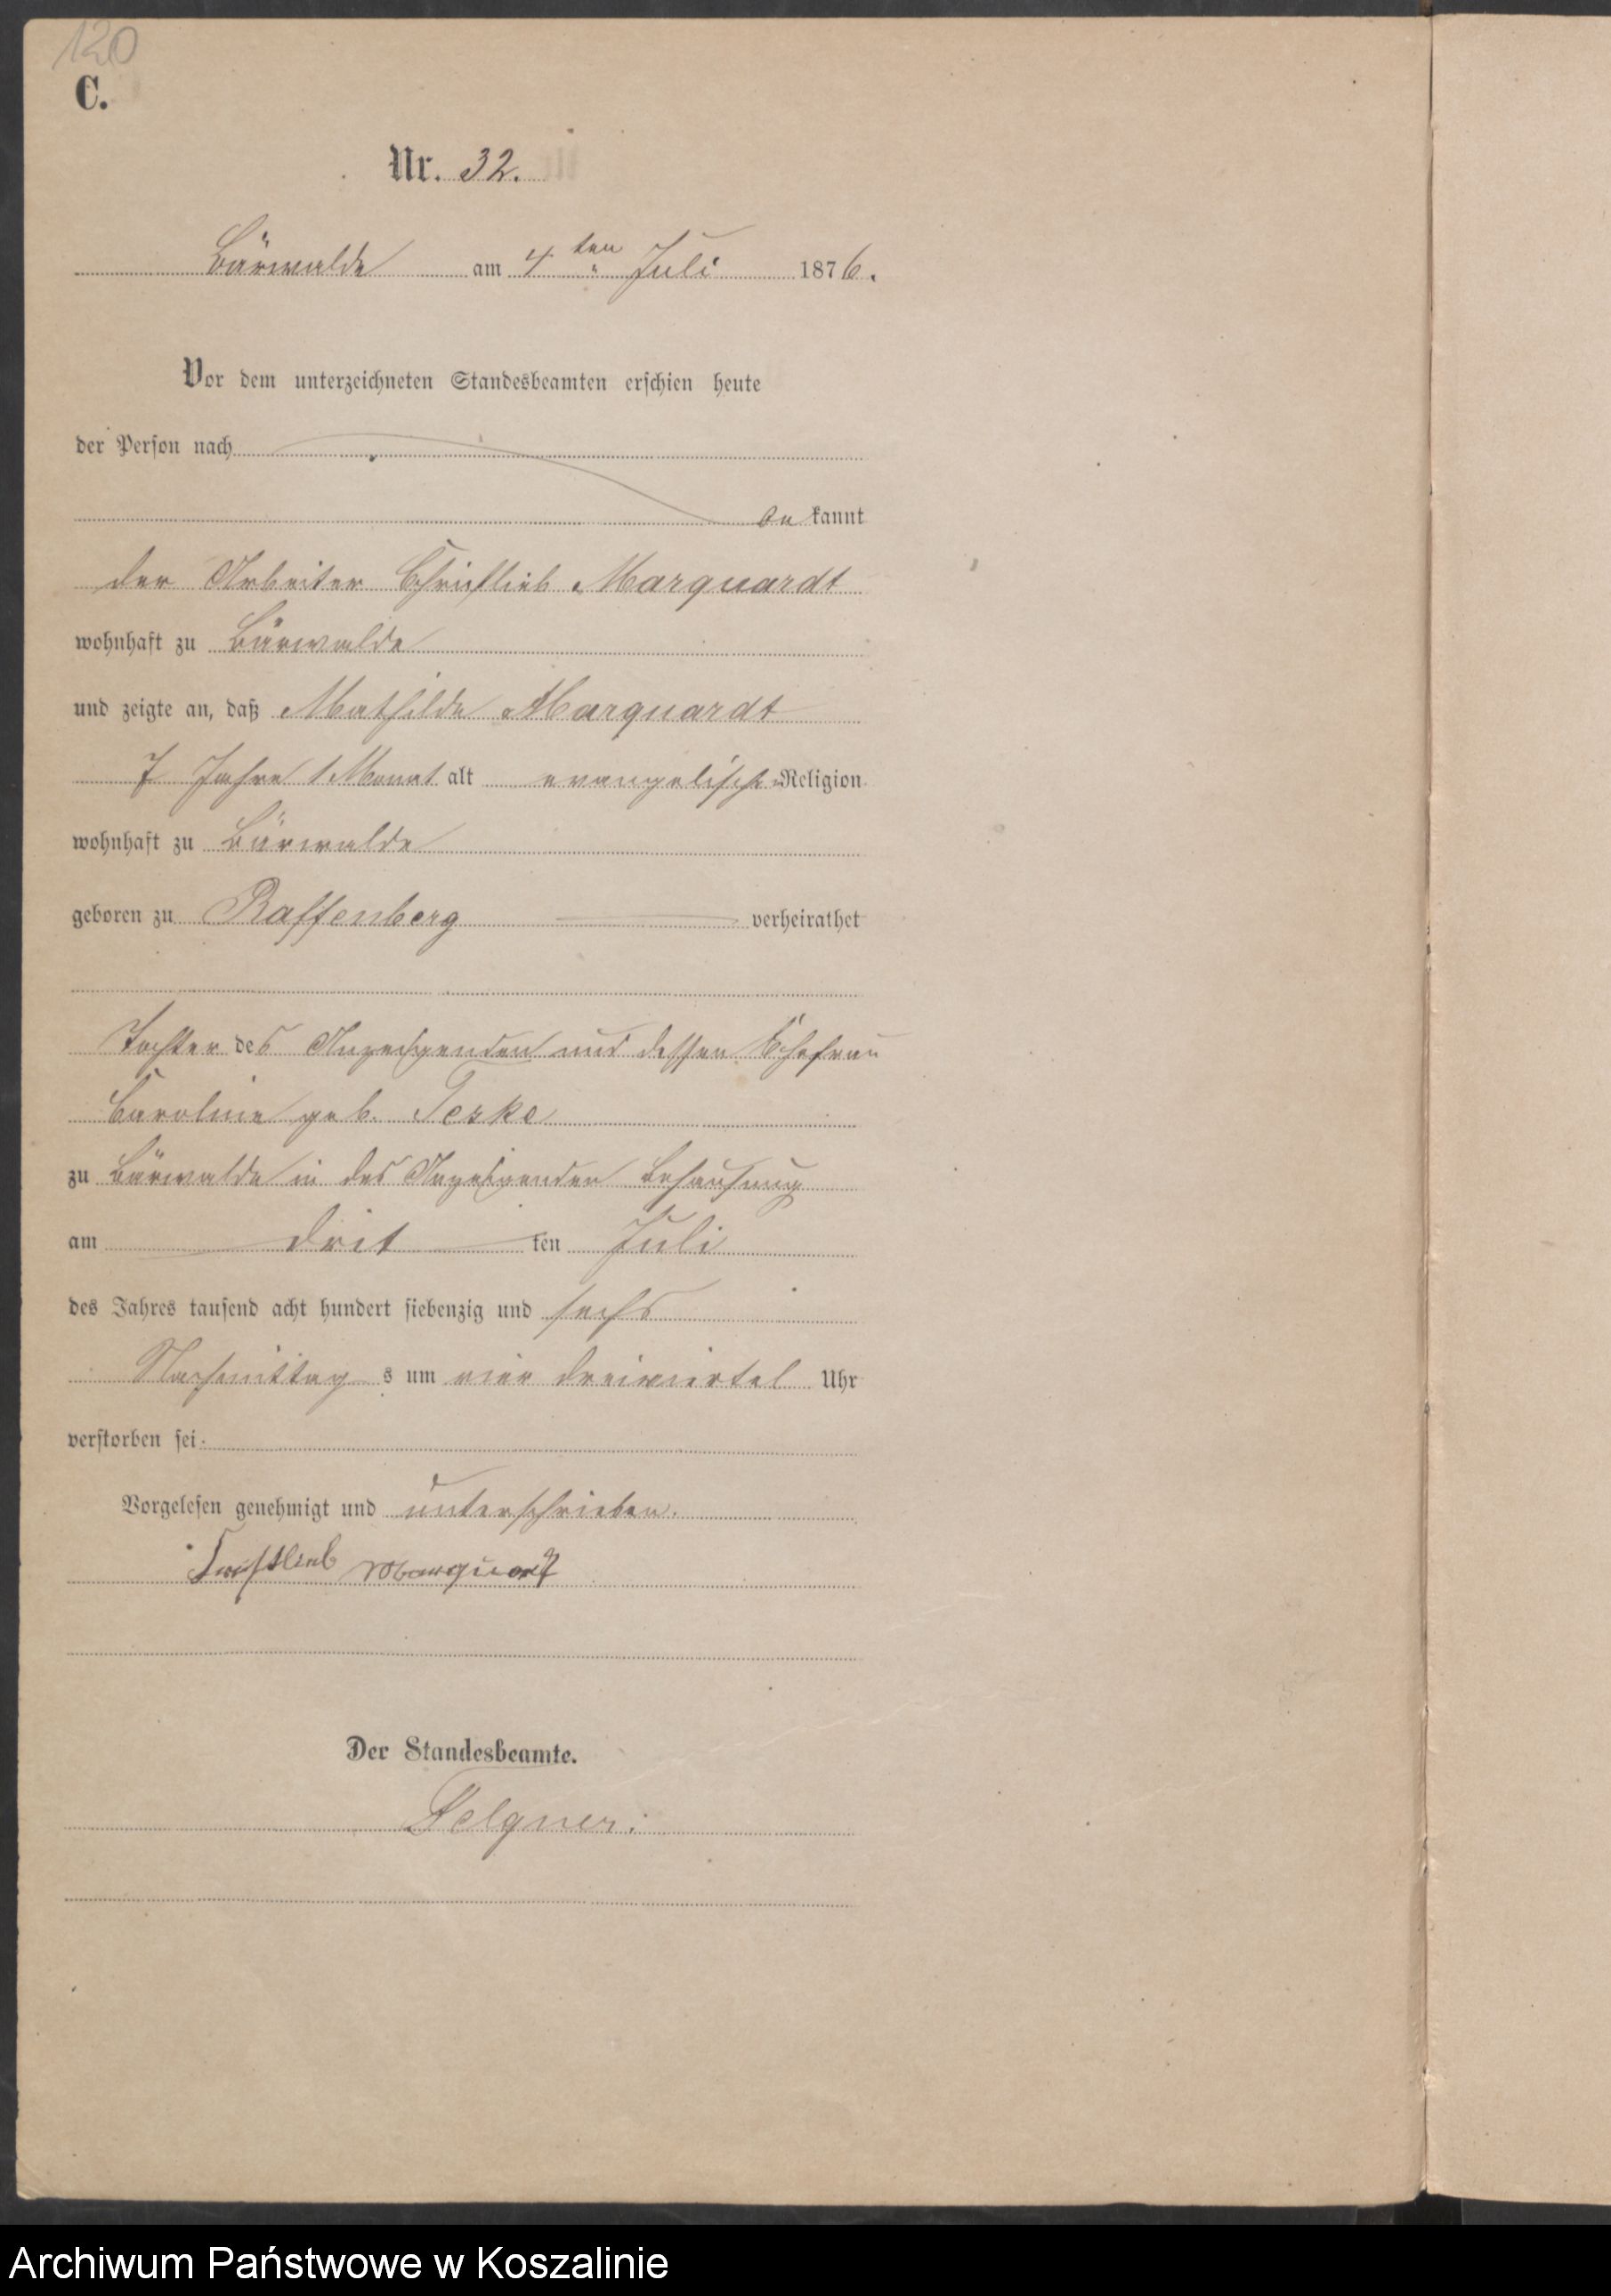 120
C.
Nr. 32.
Bärwalde am 4ten Juli 1876.
Vor dem unterzeichneten Standesbeamten erschien heute
der Person nach
bekannt
der Arbeiter Christlieb Marquardt
wohnhaft zu Bärwalde
und zeigte an, daß Mathilde Marquardt
7 Jahre 1 Monat alt evangelischer Religion
wohnhaft zu Bärwalde
geboren zu Raffenberg verheirathet
Tochter des Anzeigenden und dessen Ehefrau
Caroline geb. Teske
zu Bärwalde in des Anzeigenden Behausung
am drit ten Juli
des Jahres tausend acht hundert siebenzig und sechs
Nachmittag s um vier dreiviertel Uhr
verstorben sei.
Vorgelesen genehmigt und unterschrieben.
Marquart
Der Standesbeamte.
Felgner.
Archiwum Państwowe w Koszalinie